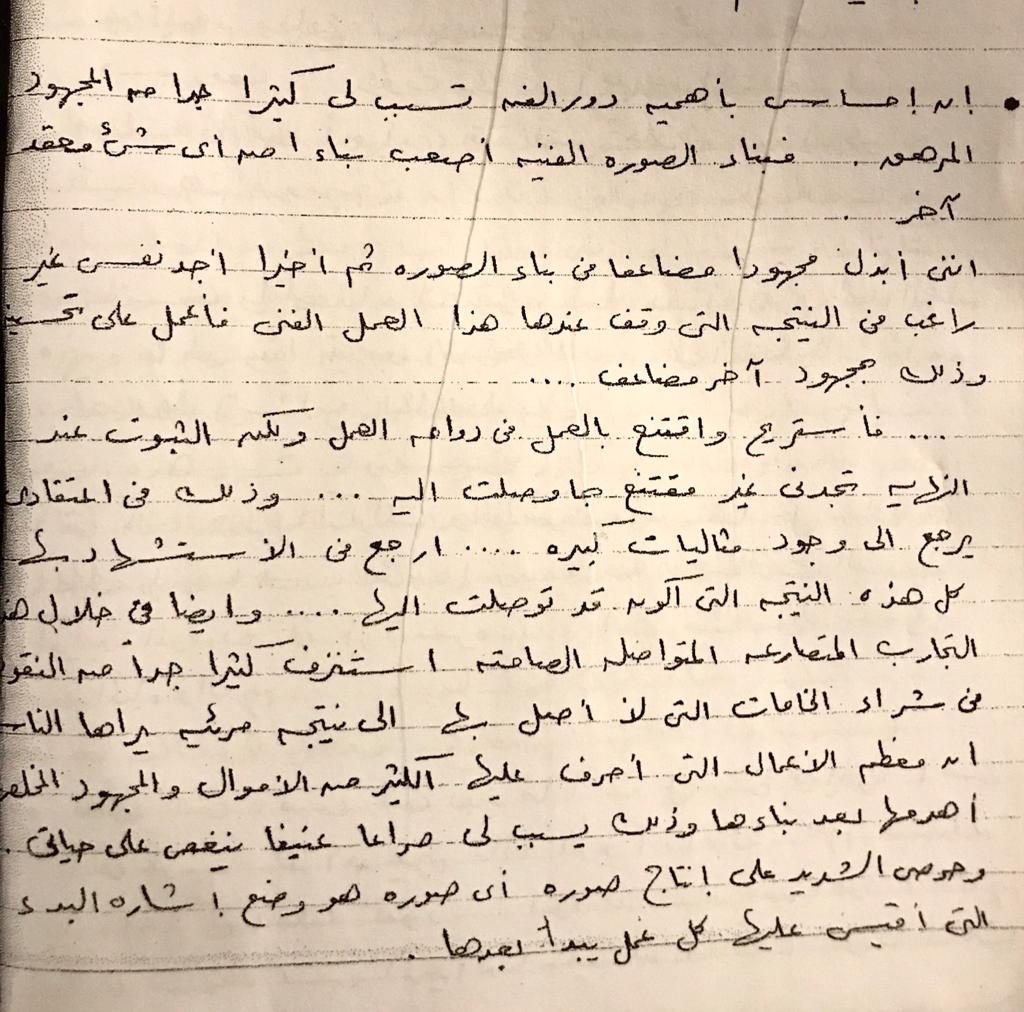 • ان إحساسى بأهميه دور الفن تسبب لى كثيرا جدا من المجهود
المرهق . فبناء الصوره الفنيه أصعب بناءا من أى شئ معقد
آخر .
اننى أبذل مجهودا مضاعفا فى بناء الصوره ثم أخيرا أجد نفسى غير
راغب فى النتيجه التى وقف عندها هذا العمل الفنى فأعمل على
وذلك بمجهود آخر مضاعف ....
.... فأستريح واقتنع بالعمل فى دوامه العمل ولكن الثبوت عند
النهايه تجدنى غير مقتنع بما وصلت اليه ... وذلك فى اعتقادى
يرجع الى وجود مثاليات كبيره .... ارجع فى الأستشهاد بها
كل هذه النتيجه التى أكون قد توصلت اليها .... وايضا فى خلال
التجارب المتصارعه المتواصله الصامته استنزف كثيرا جداً من
فى شراء الخامات التى لا أصل بها الى نتيجه مرئيه يراها
ان معظم الأعمال التى أصرف عليها الكثير من الأموال والمجهود
أهدمها بعد بناءها وذلك يسبب لى صراعا عنيفا ينغص على حياتى .
وحرصى الشديد على إنتاج صوره أى صوره هو وضع إشاره البدء
التى أقيس عليها كل عمل يبدأ بعدها .